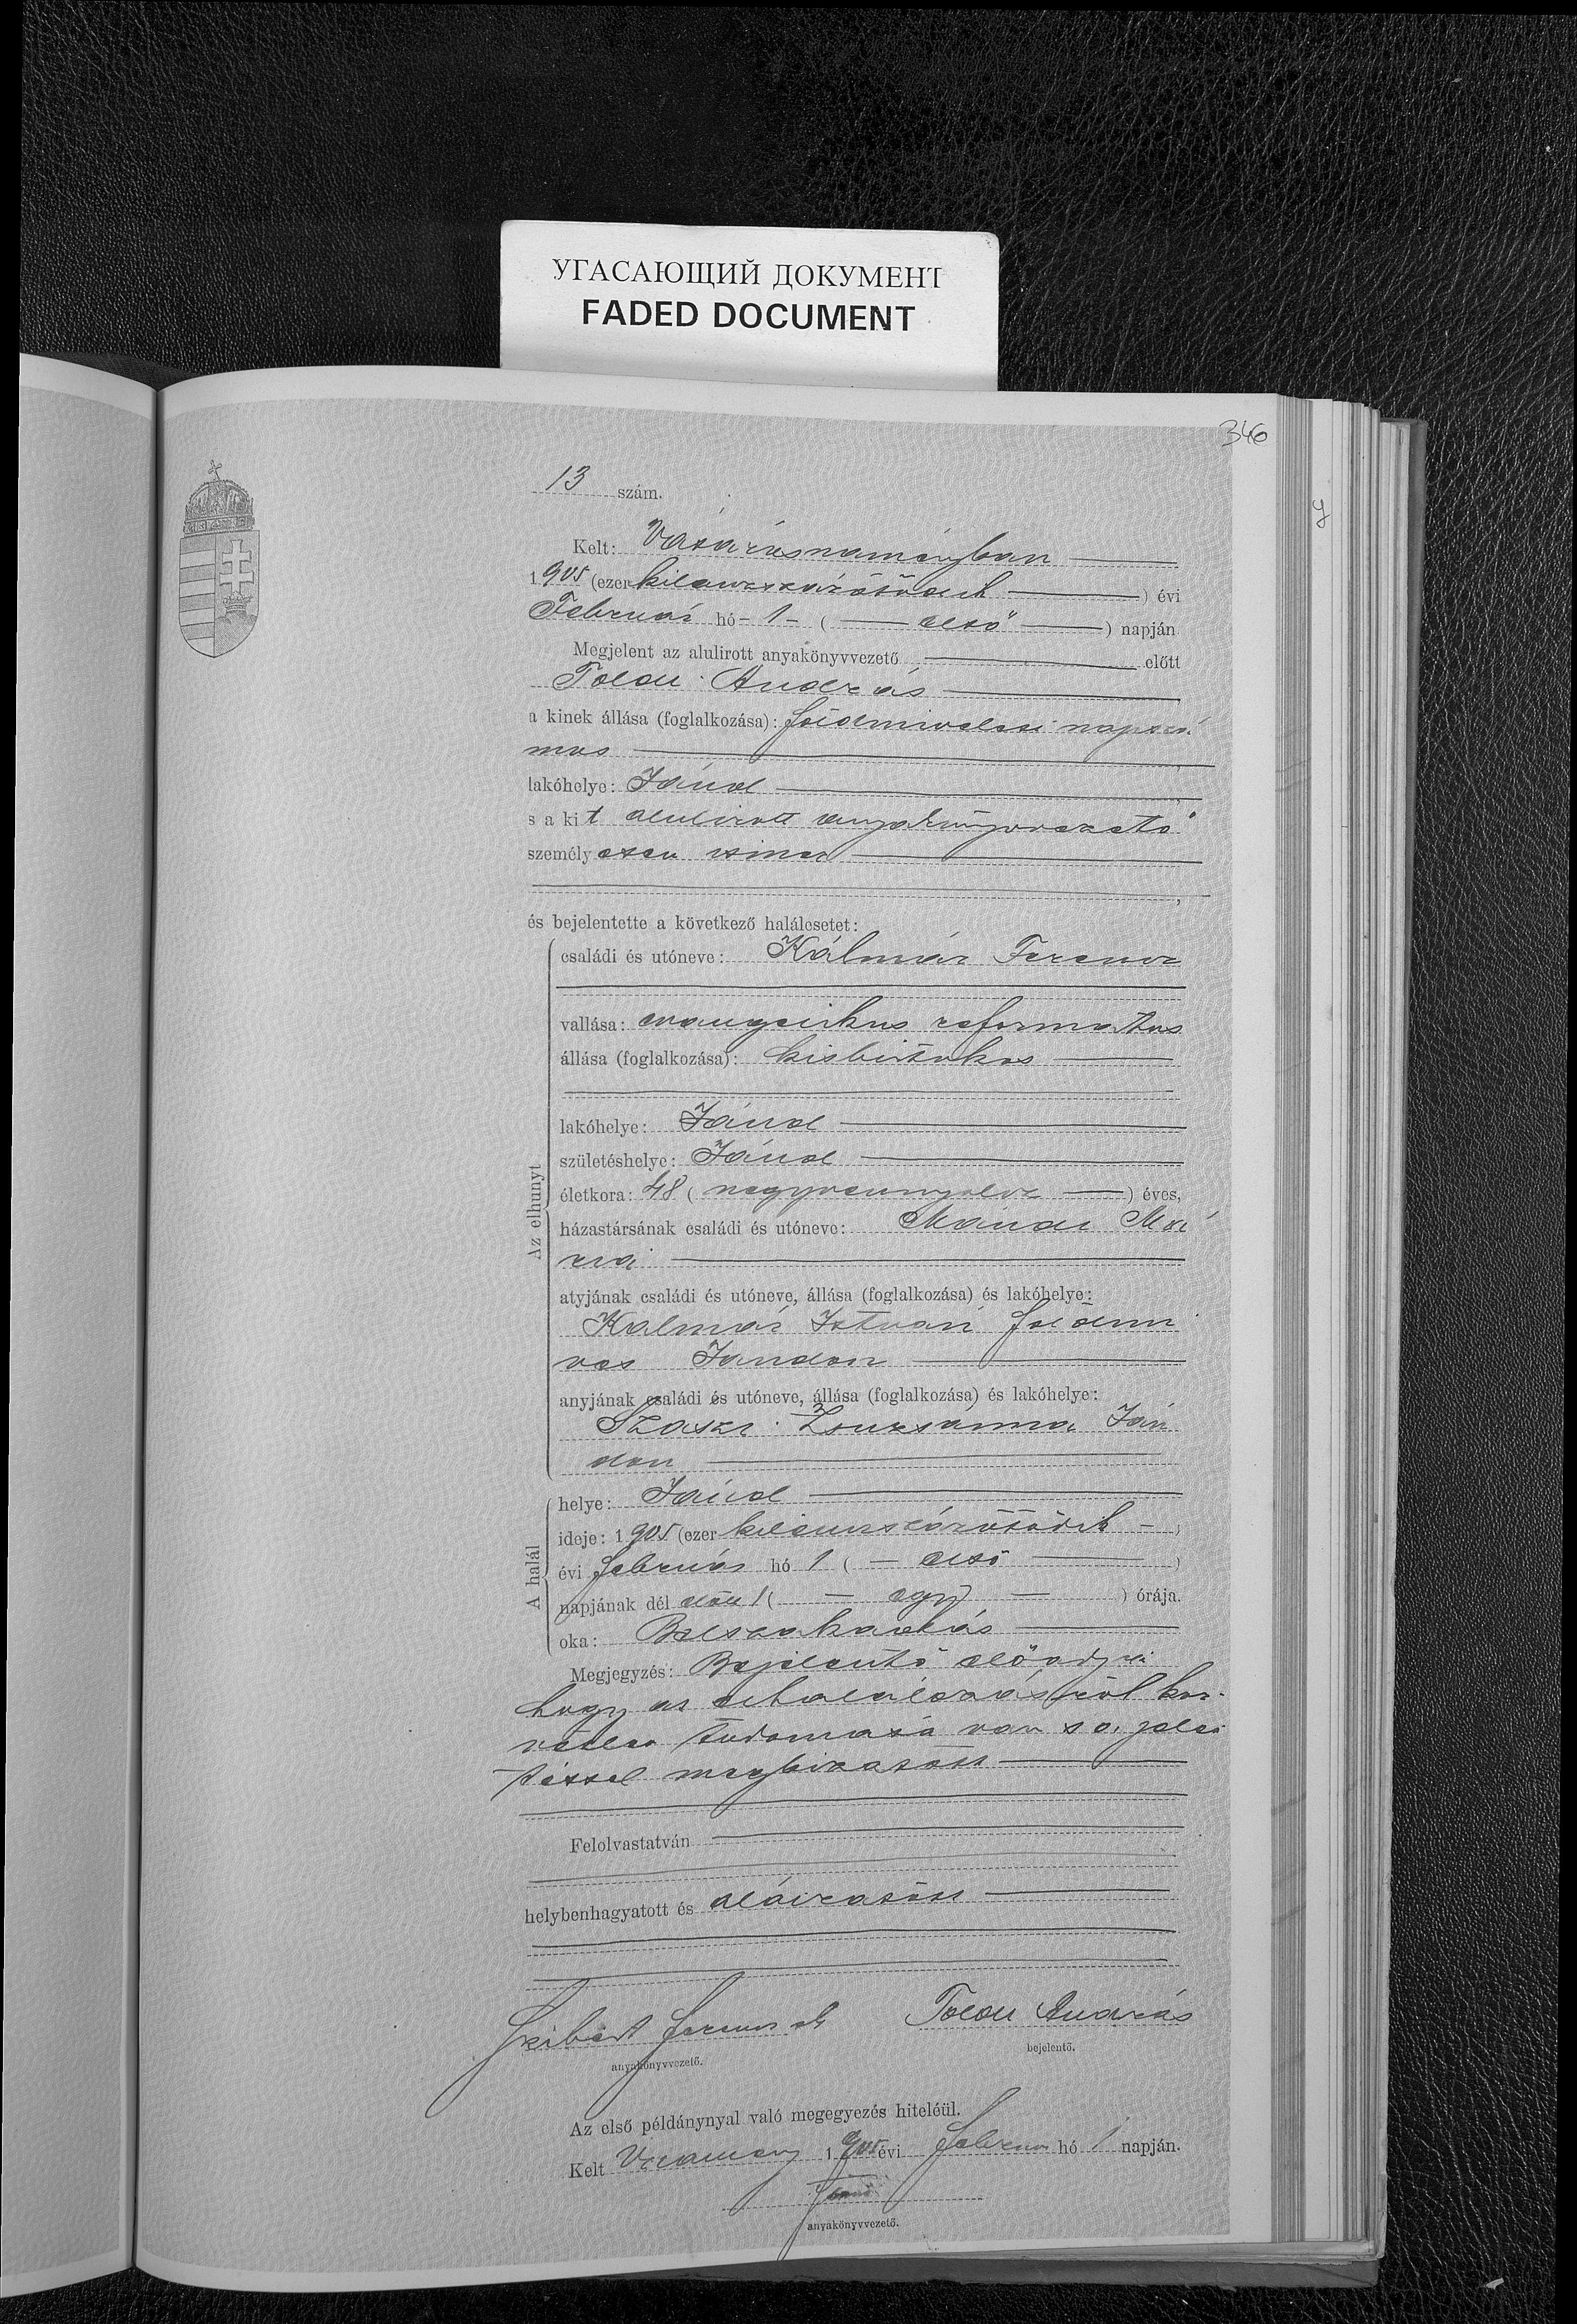 УГАСАЮЩИЙ ДОКУМЕНТ
FADED DOCUMENT
346
13 szám.
Kelt: Vásárosnaményban
1905 (ezer kilenczszázötödik) évi
Február hó - 1 - ( első ) napján
Megjelent az alulirott anyakönyvvezető előtt
András
a kinek állása (foglalkozása): földmivelési napszá
mos
lakóhelye: Jánd
s a kit alulirott anyakönyvvezető
személyesen ismer
és bejelentette a következő halálesetet:
Az elhunyt
családi és utóneve: Kálmár Ferencz
vallása: evangelikus reformatus
állása (foglalkozása): kisbirtokos
lakóhelye: Jánd
születéshelye: Jánd
életkora: 48 ( negyvennyolcz ) éves,
házastársának családi és utóneve: Mándi Má
ria
atyjának családi és utóneve, állása (foglalkozása) és lakóhelye:
Kalmár István földmi
ves Jándon
anyjának családi és utóneve, állása (foglalkozása) és lakóhelye:
Zsuzsánna Ján
don
A halál
helye: Jánd
ideje: 1905 (ezer kilenczszázötödik - )
évi február hó 1 ( - első )
napjának dél előtt 1 ( - egy - ) órája.
oka:
Megjegyzés: Bejelentő előadja
hogy az elhalálozásról köz-
vetlen tudomása van s a jelen
téssel megbizatott
Felolvastatván
helybenhagyatott és aláiratott
Ferencz
András
anyakönyvvezető.
bejelentő.
Az első példánynyal való megegyezés hiteléül.
Kelt Vnamény 1905 évi februar hó 1 napján.
anyakönyvvezető.